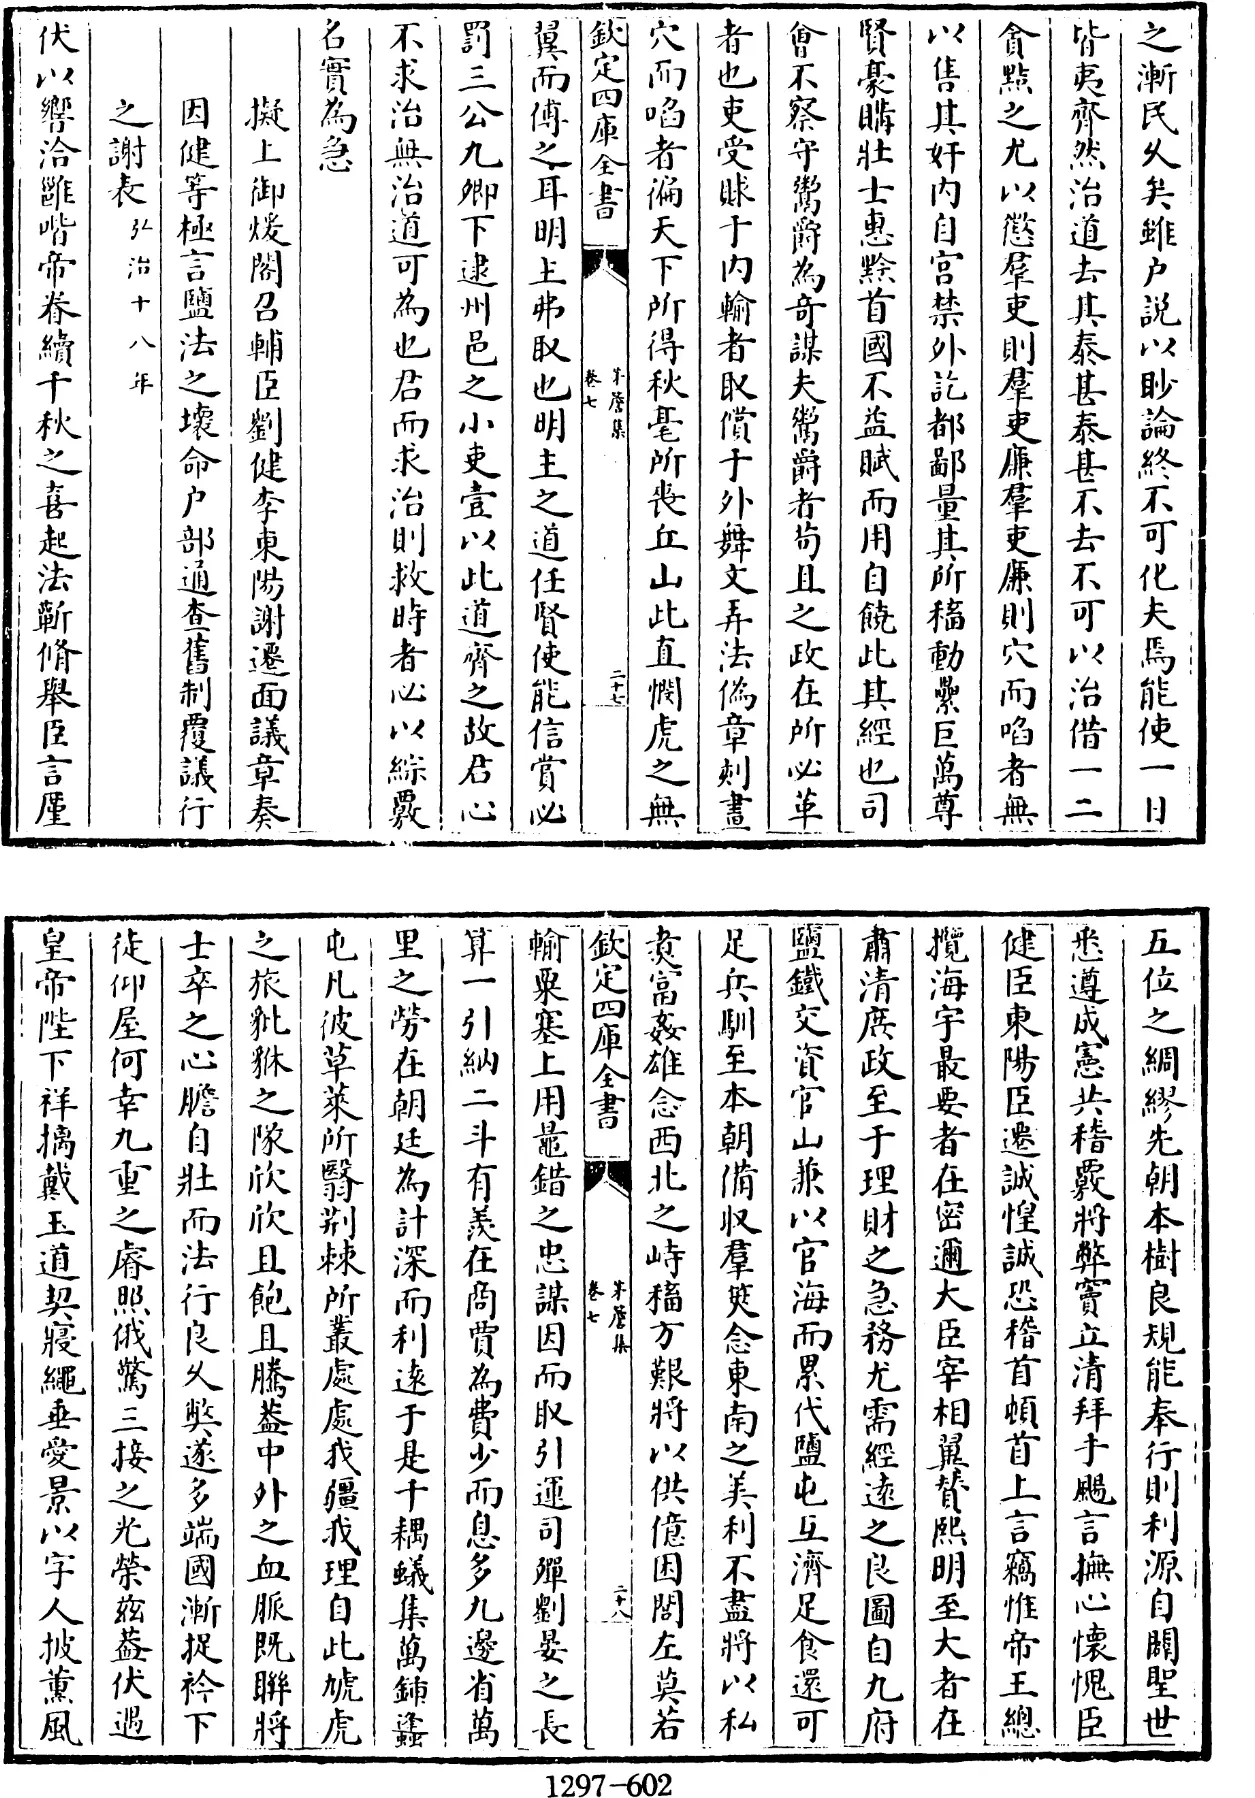 之漸民久矣雖户説以眇論終不可化夫焉能使一日
皆夷齊然治道去其泰甚泰甚不去不可以治借一二
貪點之尤以懲羣吏則羣吏亷羣吏亷則穴而啗者無
以售其奸内自宫禁外訖都鄙量其所穡動纍巨萬尊
賢豪購壯士惠黔首國不益賦而用自饒此其經也司
㑹不察守鬻爵為奇謀夫鬻爵者茍且之政在所必革
者也吏受賕于内輸者取償于外舞文弄法偽章刺畫
穴而啗者徧天下所得秋毫所喪丘山此直憫虎之無
欽定四庫全書
茅簷集
卷七
二十七
翼而傅之耳明主弗取也明主之道任賢使能信賞必
罰三公九卿下逮州邑之小吏壹以此道齊之故君心
不求治無治道可為也君而求治則救時者必以綜覈
名實為急
擬上御煖閣召輔臣劉健李東陽謝遷面議章奏
因健等極言鹽法之壊命户部通查舊制覆議行
之謝表弘治十八年
伏以響洽雝喈帝眷續千秋之喜起法蘄脩舉臣言厪
五位之綢繆先朝本樹良規能奉行則利源自闢聖世
悉遵成憲共稽覈將弊竇立清拜手颺言撫心懐愧臣
健臣東陽臣遷誠惶誠恐稽首頓首上言竊惟帝王總
攬海宇最要者在密邇大臣宰相翼贊熙明至大者在
肅清庶政至于理財之急務尤需經逺之良圖自九府
鹽鐵交資官山兼以官海而累代鹽屯互濟足食還可
足兵馴至本朝備収羣筴念東南之美利不盡將以私
煑富姦雄念西北之峙穡方艱將以供億困閭左莫若
欽定四庫全書
茅簷集
卷七
二十八
輸粟塞上用鼂錯之忠謀因而取引運司殫劉晏之長
算一引納二斗有羡在商費為費少而息多九邊省萬
里之勞在朝廷為計深而利逺于是千耦蟻集萬鍤蠭
屯凡彼草萊所翳荆棘所叢處處我疆我理自此虓虎
之旅貔貅之隊欣欣且飽且騰葢中外之血脈既聯將
士卒之心膽自壯而法行良久弊遂多端國漸捉衿下
徒仰屋何幸九重之睿照俄驚三接之光榮兹葢伏遇
皇帝陛下祥摛戴玉道契寢繩垂愛景以字人披薫風
1297-602